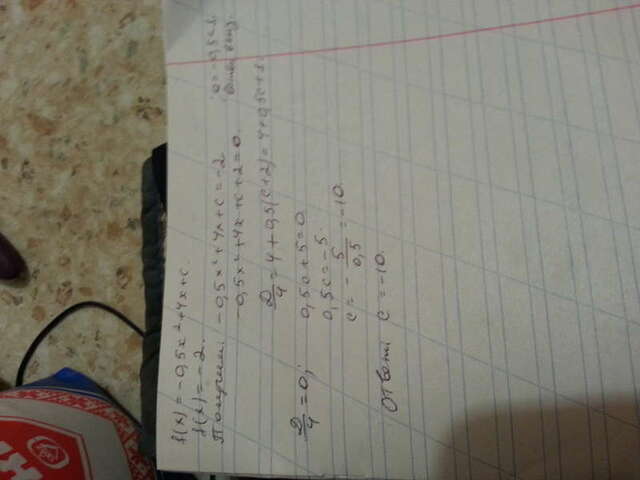 f(x) = -0,5x² + 4x + c.
f(x) = -2.
Получим: -0,5x² + 4x + c = -2
-0,5x² + 4x + c + 2 = 0.
D/4 = 4 + 0,5(c+2) = 4 + 0,5c + 1
D/4 = 0; 0,5c + 5 = 0
0,5c = -5.
c = - 5/0,5 = -10.
Ответ: c = -10.